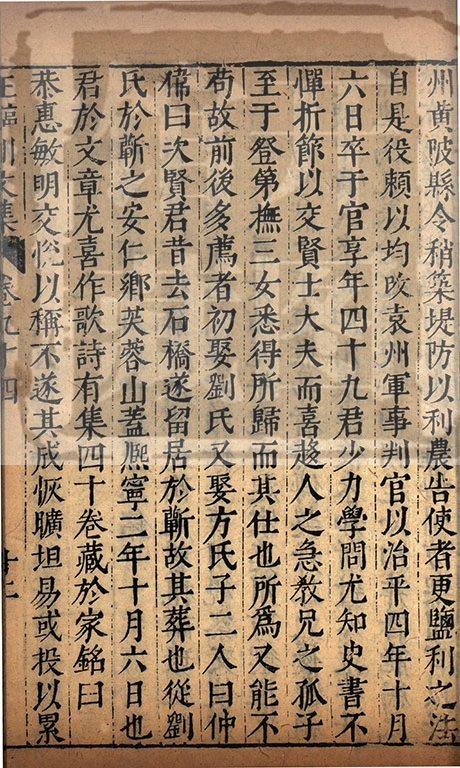 州黄陂縣令稍築堤防以利農告使者更鹽利之法
自是役賴以均改袁州軍事判官以治平四年十月
六日卒于官享年四十九君少力學問尤知史書不
憚折節以交賢士大夫而喜趍人之急教兄之孤子
至于登第撫三女悉得所歸而其仕也所爲又能不
苟故前後多薦者初娶劉氏又娶方氏子二人曰仲
偉曰次賢君昔去石橋遂留居於蘄故其葬也從劉
氏於蘄之安仁鄉芙蓉山葢熈寧二年十月六日也
君於文章尤喜作歌詩有集四十卷藏於家銘曰
恭惠敏明交悅以稱不遂其成恢曠坦易或投以累
王臨川文集 卷九十四